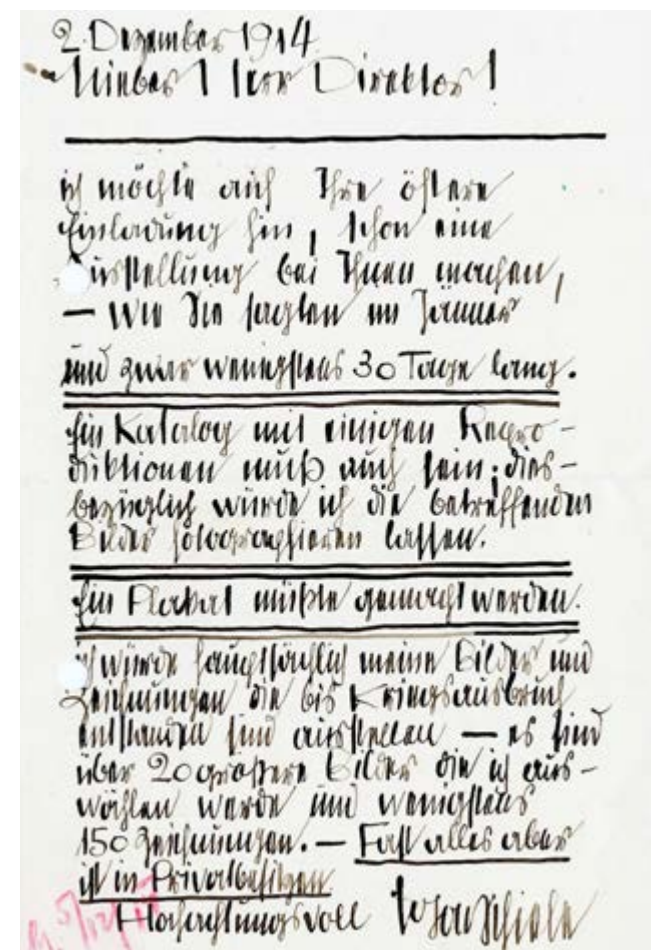 2. Dezember 1914.
Lieber Herr Direktor!
ich möchte auf Ihre öftere
Einladung hin, schon eine
Ausstellung bei Ihnen machen,
– wie Sie sagten im Jänner
und zwar wenigstens 30 Tage lang.
Ein Katalog mit einigen Repro-
duktionen muß auch sein; dies-
bezüglich würde ich die betreffenden
Bilder fotographieren lassen.
Ein Plakat müßte gemacht werden.
ich würde hauptsächlich meine Bilder und
Zeichnungen die bis Kriegsausbruch
entstanden sind ausstellen – es sind
über 20 größere Bilder die ich aus-
wählen werde und wenigstens
150 Zeichnungen. – Fast alles aber
ist in Privatbesitzen
Hochachtungsvoll Egon Schiele